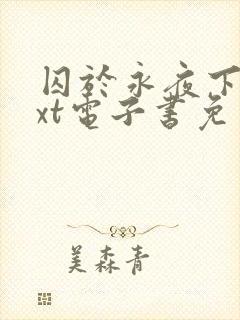 囚於永夜下
xt電子書免
美森青